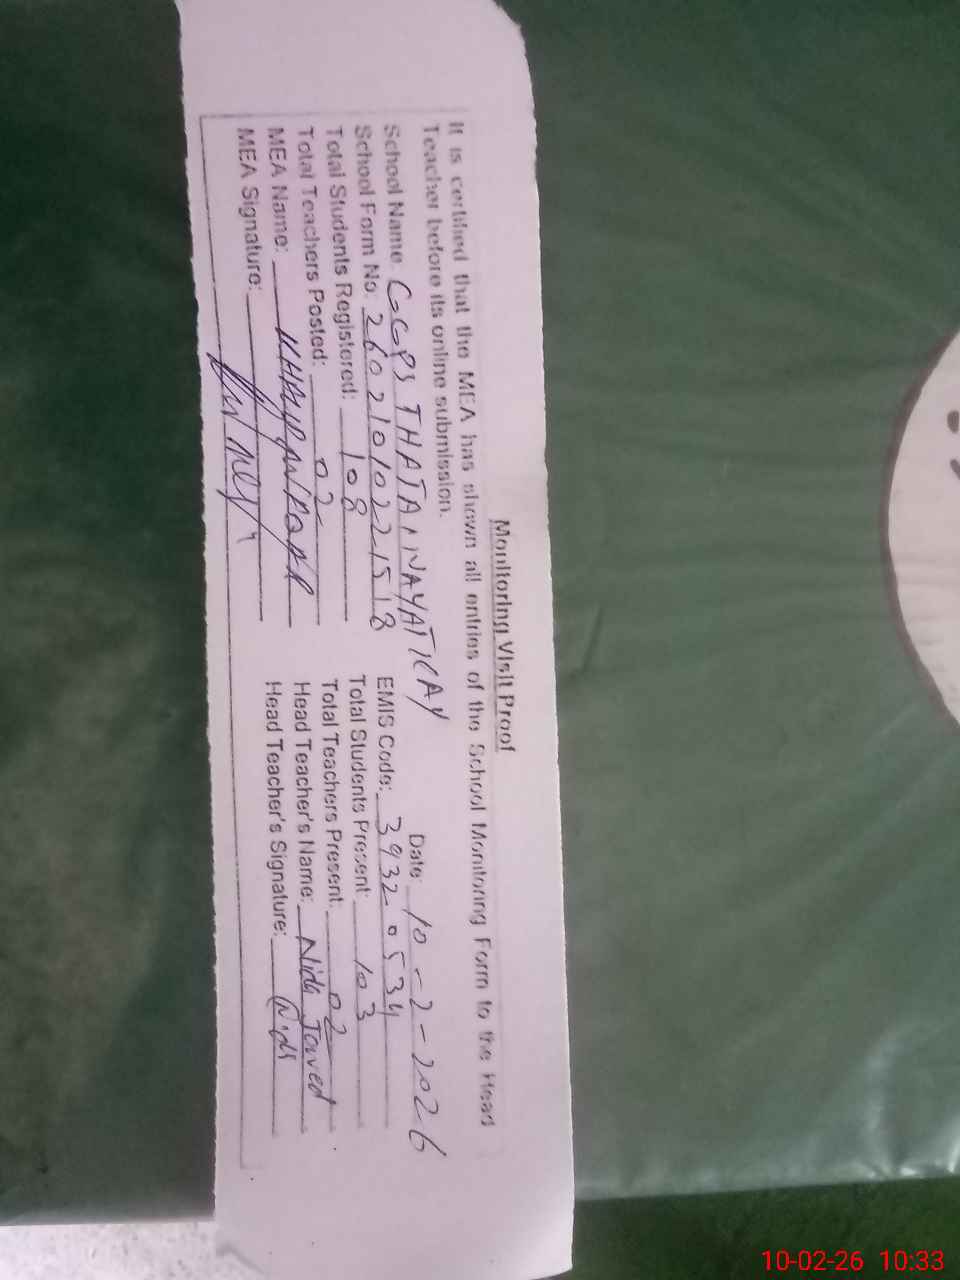 Monitoring Visit Proof
It is certified that the MEA has shown all entries of the School Monitoring Form to the Head
Teacher before its online submission.
Date: 10-2-2026
School Name: GGPS THATAI NAYATICAY
EMIS Code: 39320534
School Form No: 26021010221518
Total Students Present: 103
Total Students Registered: 108
Total Teachers Present: 02
Total Teachers Posted: 02
Head Teacher's Name: Nida Javed
MEA Name:
Head Teacher's Signature: Nida
MEA Signature:
10-02-26 10:33